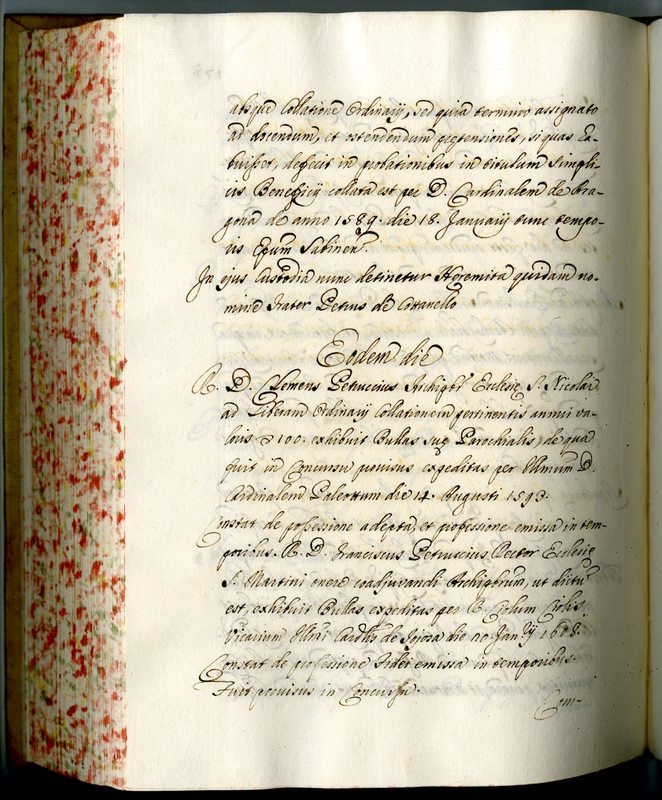 absque collatione Ordinarij, sed quia termino assignato
ad docendum, et ostendendum pretensiones, si quas ha-
buisset, defecit in probationibus in titulum simpli-
cis Beneficij collata est per D. Cardinalem de Ara-
gona de anno 1589. die 18. Januarij tunc tempo-
ris Epum Sabinen.
In ejus Custodia nunc detinetur Heremita quidam no-
mine Frater Petrus de Cottanello
Eodem die
R. D. Clemens Petruccius Archipr Ecclesię S. Nicolai
ad Liberam Ordinarij Collationem pertinentis annui va-
loris 100. exhibuit Bullas suę Parochialis, de qua
fuit in Concursu provisus expeditas per Illmum D.
Cardinalem Paleottum die 14. Augusti 1593.
Constat de possessione adepta, et professione emissa in tem-
poribus. R. D. Franciscus Petruccius Rector Ecclesię
S. Martini onere coadjuvandi Archiprbrum, ut dictu
est, exhibuit Bullas expeditas per R.
Vicarium Illmi Cardlis de Joiosa die 20 Janrij 1608.
Constat de professione Fidei emissa in temporibus.
Fuit provisus in Concursu.
Com-